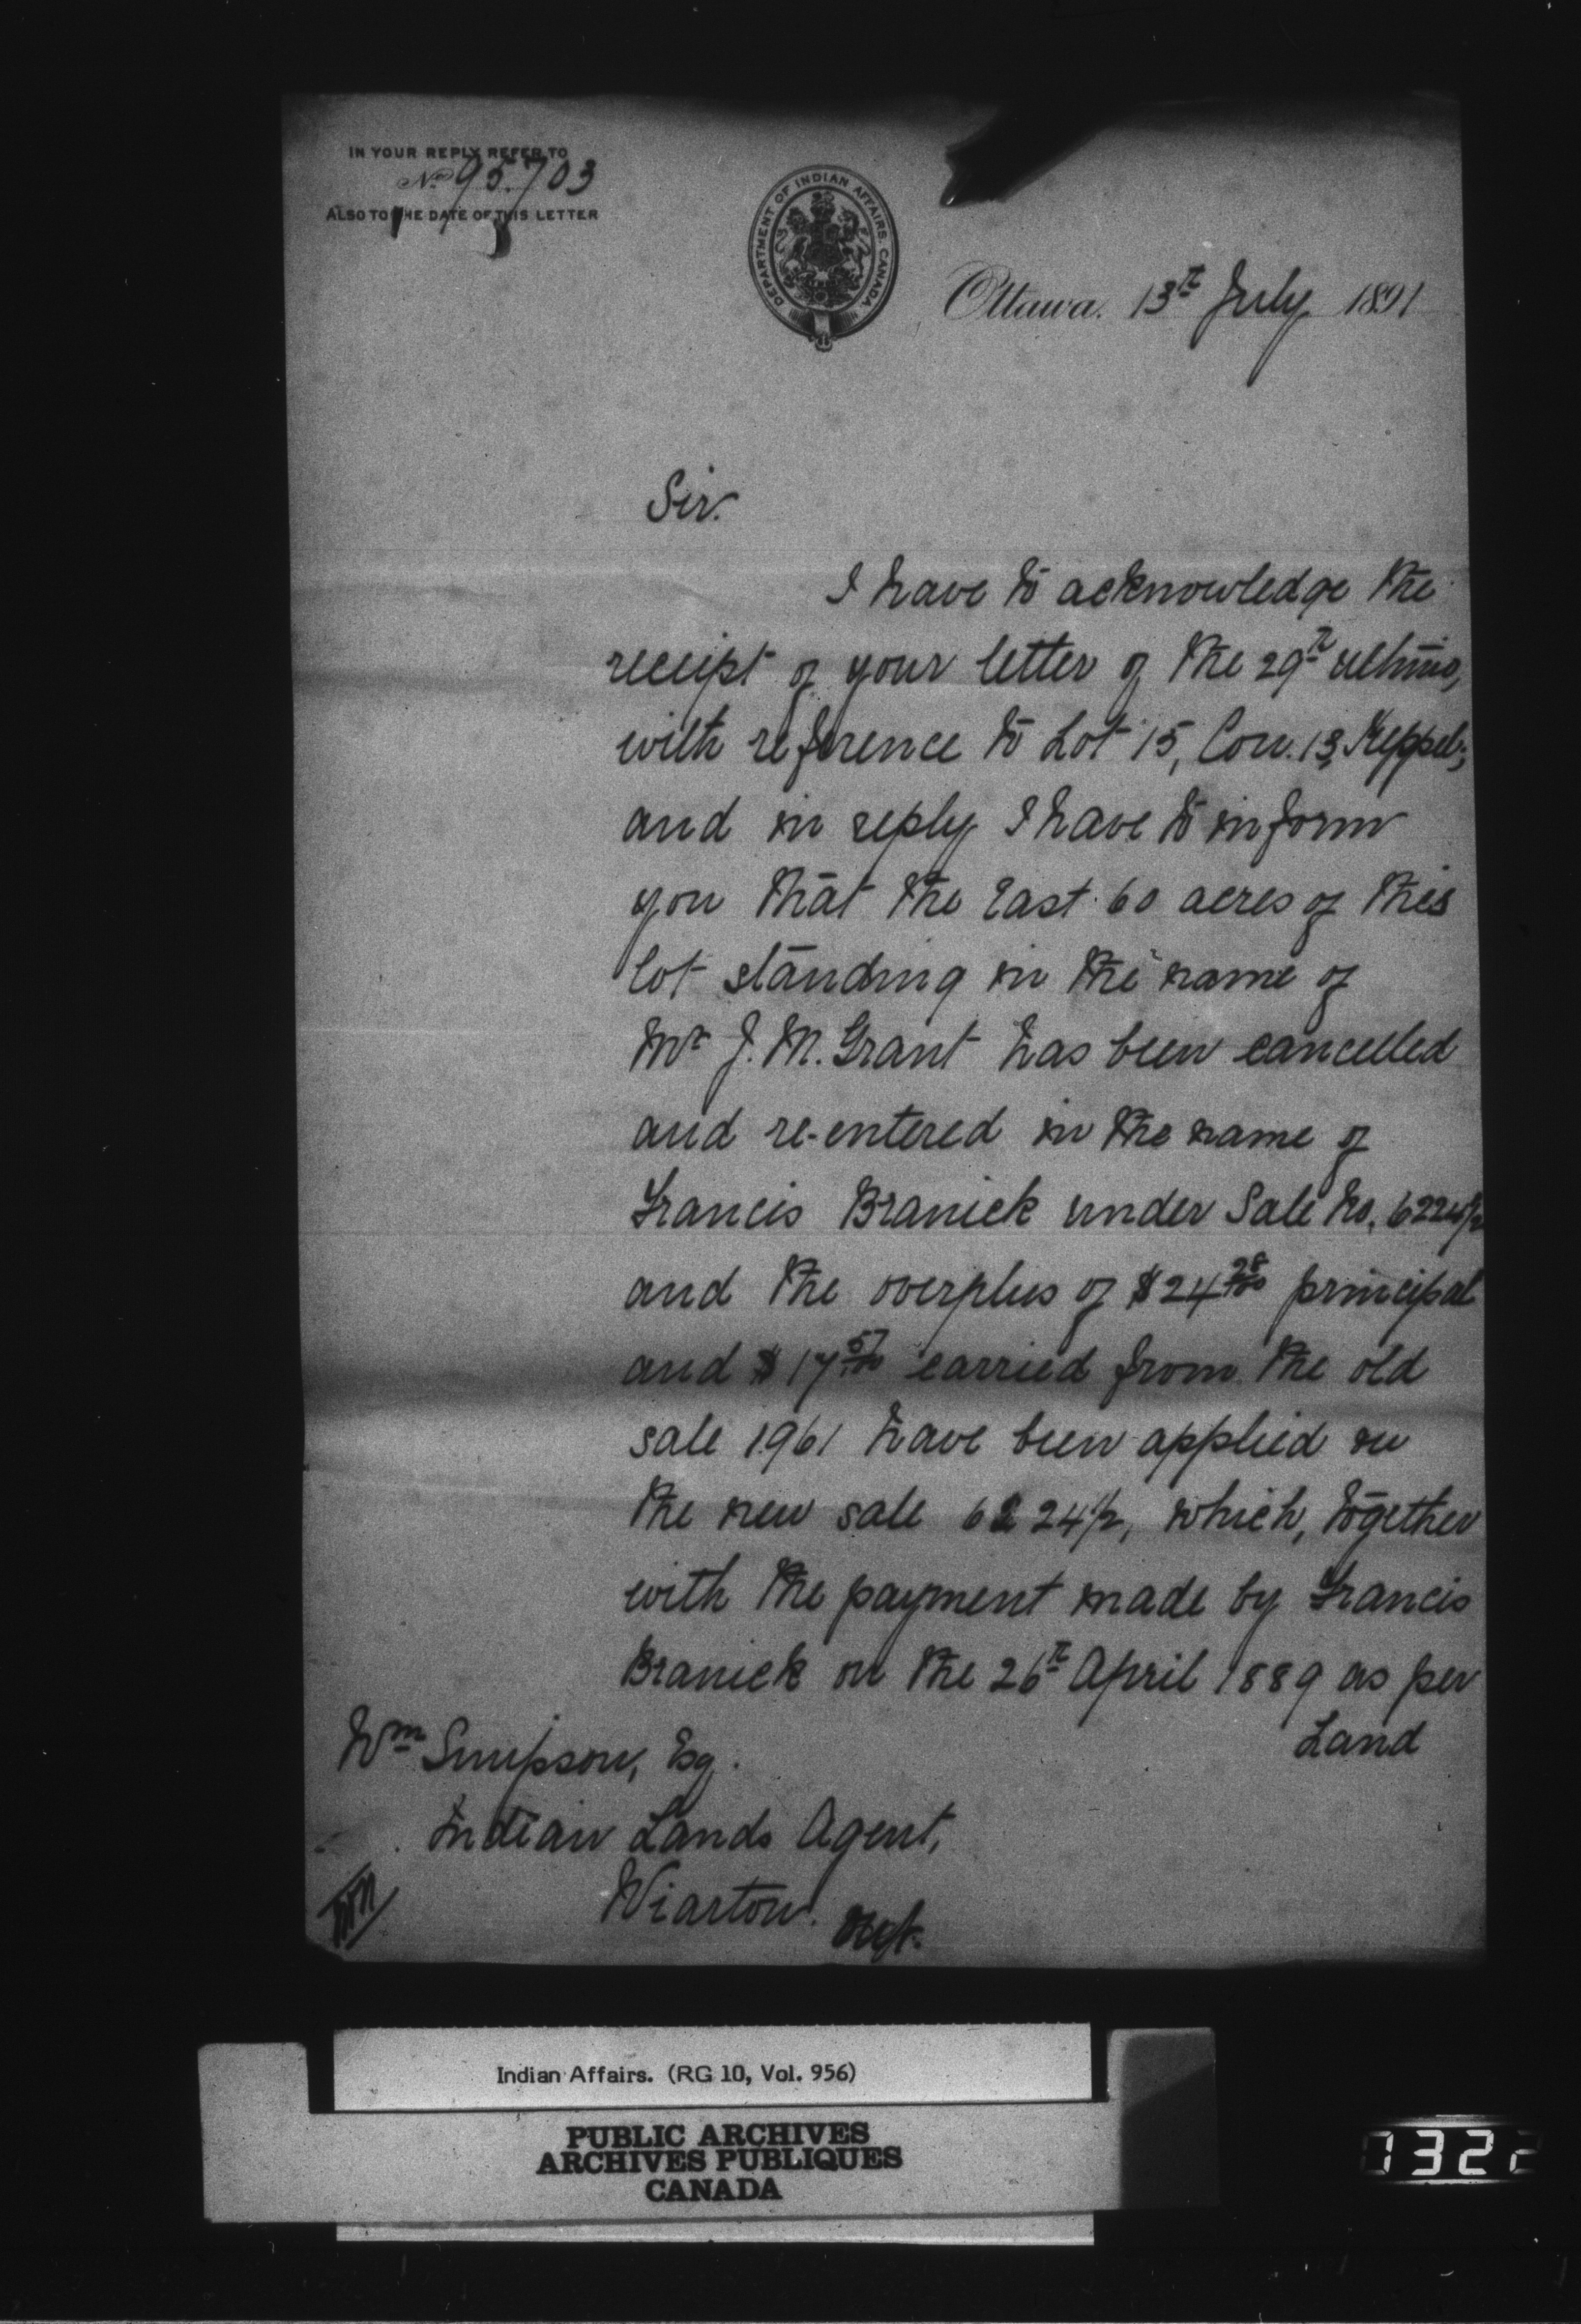 IN YOUR REPLY REFER TO
No 95.703
ALSO TO THE DATE OF THIS LETTER
DEPARTMENT OF INDIAN AFFAIRS. CANADA.
Ottawa. 13th July 1891
Sir.
I have to acknowledge the
receipt of your letter of the 29th ultimo,
with reference to Lot 15, Con. 13, Keppel;
and in reply I have to inform
you that the East 60 acres of this
lot standing in the name of
Mr J. M. Grant has been cancelled
and re-entered in the name of
Francis Branick under Sale No. 6224½
and the overplus of $24 28/100 principal
and $17 57/100 carried from the old
sale 1961 have been applied on
the new sale 6224½, which, together
with the payment made by Francis
Branick on the 26th April 1889 as per
Land
Wm Simpson, Esq.
Indian Lands Agent,
Wiarton. Ont.
Indian Affairs. (RG 10, Vol. 956)
PUBLIC ARCHIVES
ARCHIVES PUBLIQUES
CANADA